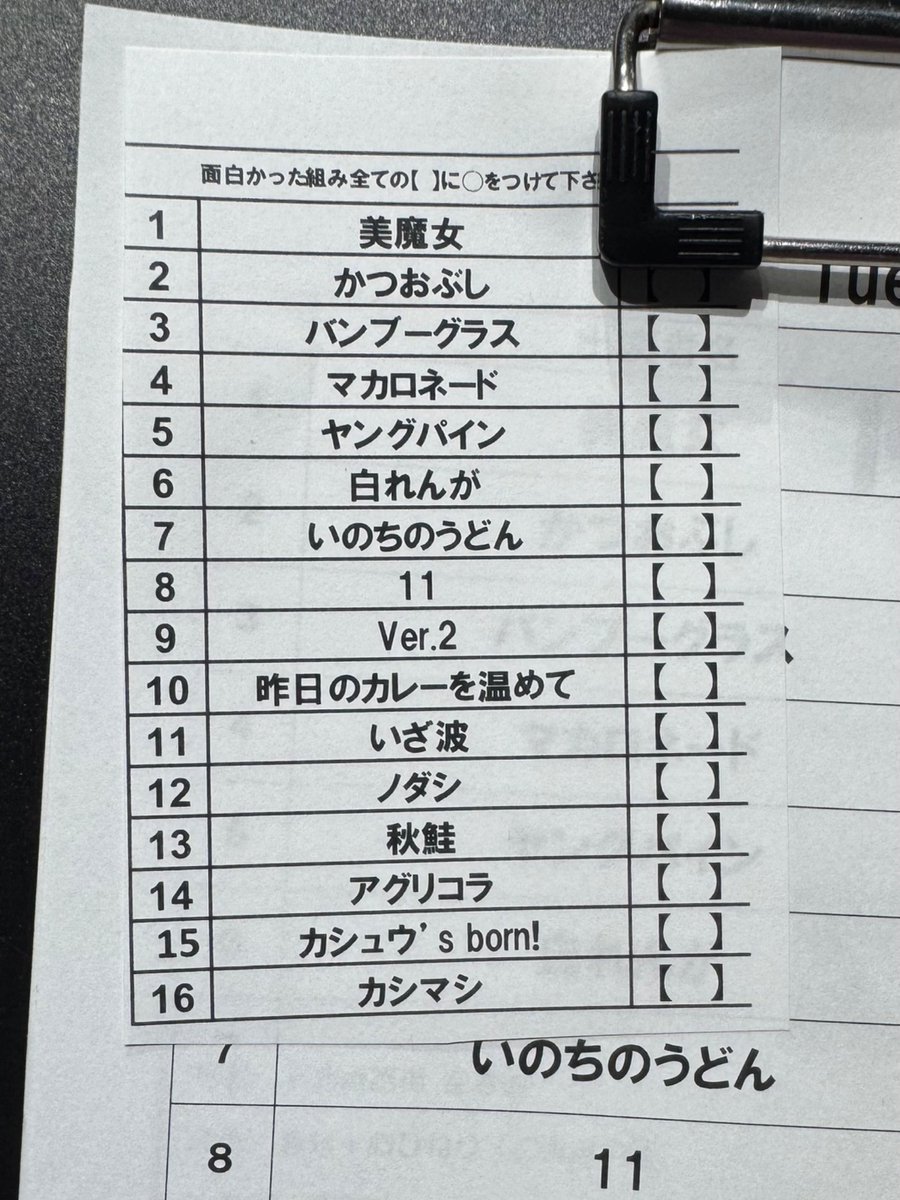 面白かった組み全ての【 】に○をつけて下さ
1 美魔女
2 かつおぶし 【 】
3 バンブーグラス 【 】
4 マカロネード 【 】
5 ヤングパイン 【 】
6 白れんが 【 】
7 いのちのうどん 【 】
8 11 【 】
9 Ver.2 【 】
10 昨日のカレーを温めて 【 】
11 いざ波 【 】
12 ノダシ 【 】
13 秋鮭 【 】
14 アグリコラ 【 】
15 カシュウ’s born! 【 】
16 カシマシ 【 】
Tue
ス
7 いのちのうどん
8 11